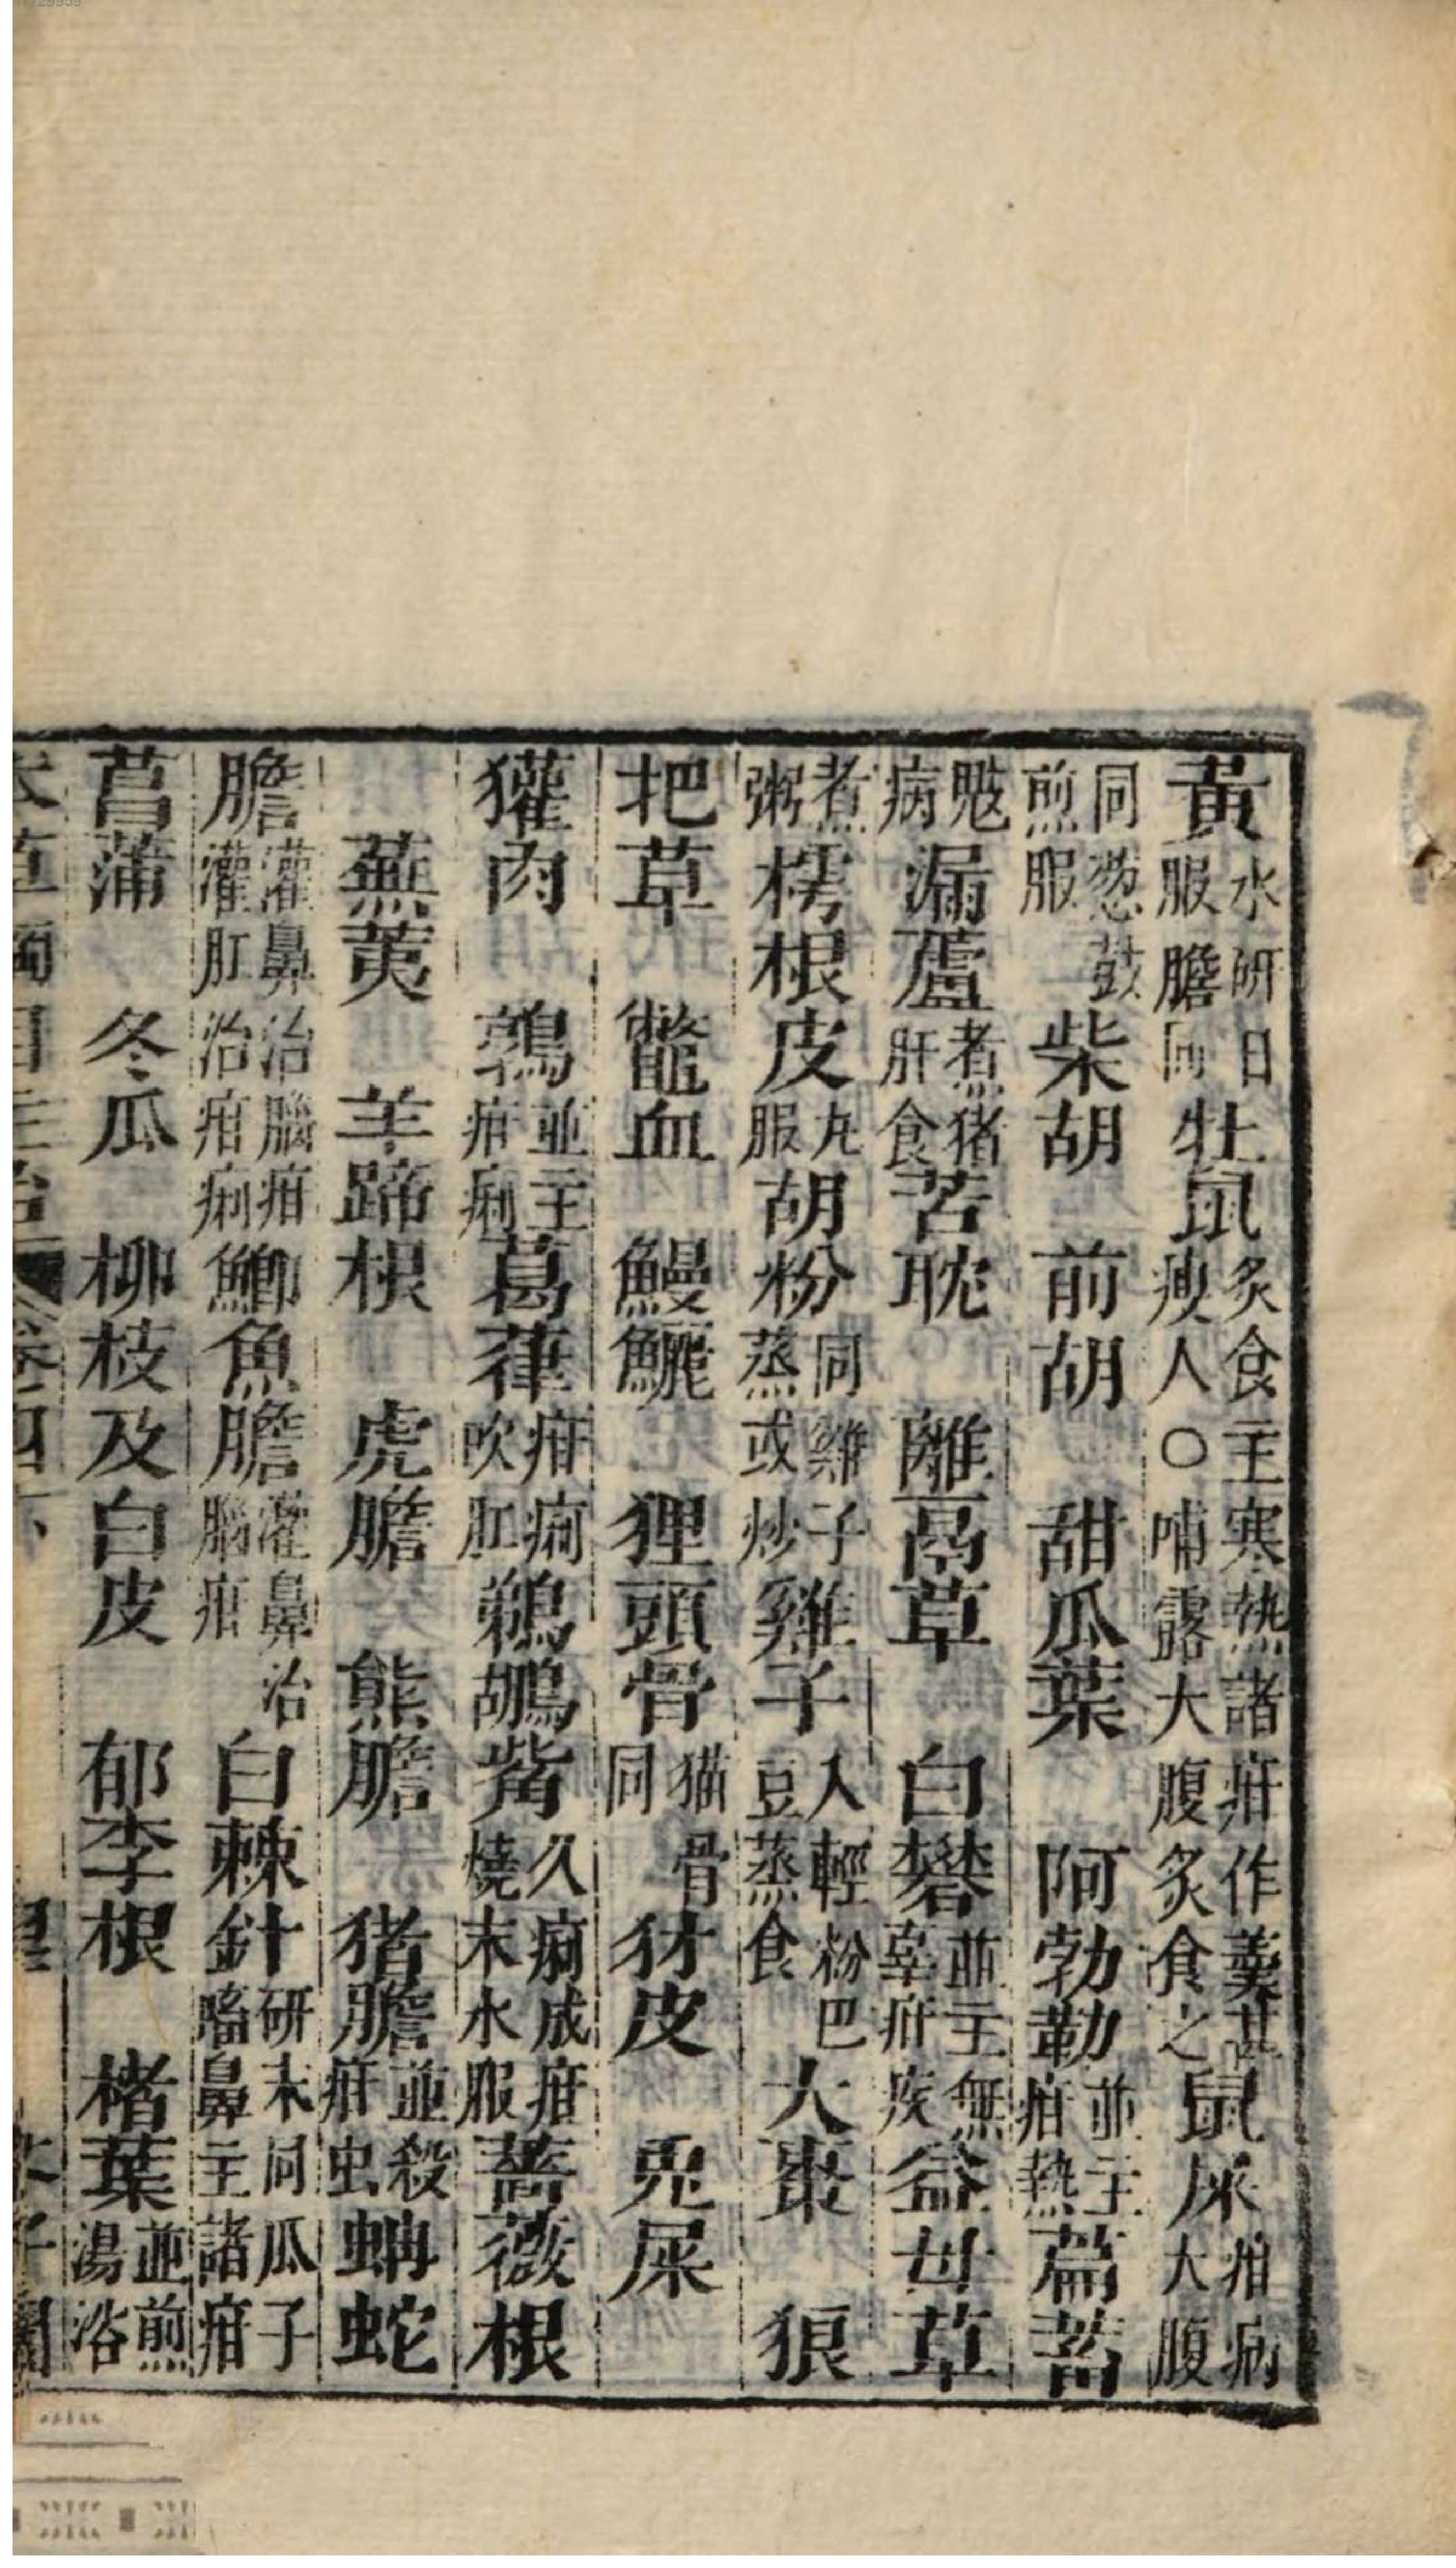 黃水研日服膽同牡鼠炙食主寒熱諸疳作羹甚瘦人○哺露大腹炙食之鼠屎疳病大腹
同葱豉煎服柴胡　前胡　甜瓜葉　阿勃勒並主疳熱萹蓄
魃病漏蘆煮猪肝食苦耽　離鬲草　白礬並主無辜疳疾益母草
煮粥樗根皮丸服胡粉同雞子蒸或炒雞子入輕粉巴豆蒸食大棗　狼
把草　鱉血　鰻鱺　狸頭骨猫骨同　犲皮　兎屎
獾肉　鶉並主疳痢葛葎疳痢吹肛鵜鶘觜久痢成疳燒末水服薔薇根
蕪荑　羊蹄根　虎膽　熊膽　猪膽並殺疳虫蚺蛇
膽灌鼻治腦疳灌肛治疳痢鯽魚膽灌鼻治腦疳白棘針研末同瓜子㗜鼻主諸疳
菖蒲　冬瓜　柳枝及白皮　郁李根　楮葉並煎湯浴
本草綱目主治卷四下